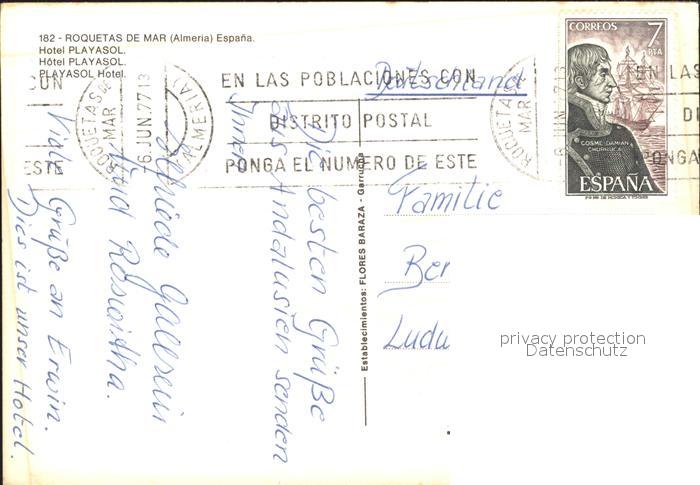 182 - ROQUETAS DE MAR (Almeria) España.
Hotel PLAYASOL.
Hôtel PLAYASOL.
PLAYASOL Hotel.
CORREOS 7 PTA
COSME DAMIAN
CHURRUCA
ESPAÑA
CON
ESTE
ROQUETAS DE MAR
6 JUN. 77 13
(ALMERIA)
EN LAS POBLACIONES CON
DISTRITO POSTAL
PONGA EL NUMERO DE ESTE
ROQUETAS
MAR
6 JUN. 77 13
EN LAS
DI
PONGA
Deutschland
Familie
Ber
Ludu
privacy protection
Datenschutz
Establecimientos: FLORES BARAZA - Garrucha
Die besten Grüße
aus Andalusien senden
Ihnen
und Roswitha.
Viele Grüße an Erwin.
Dies ist unser Hotel.